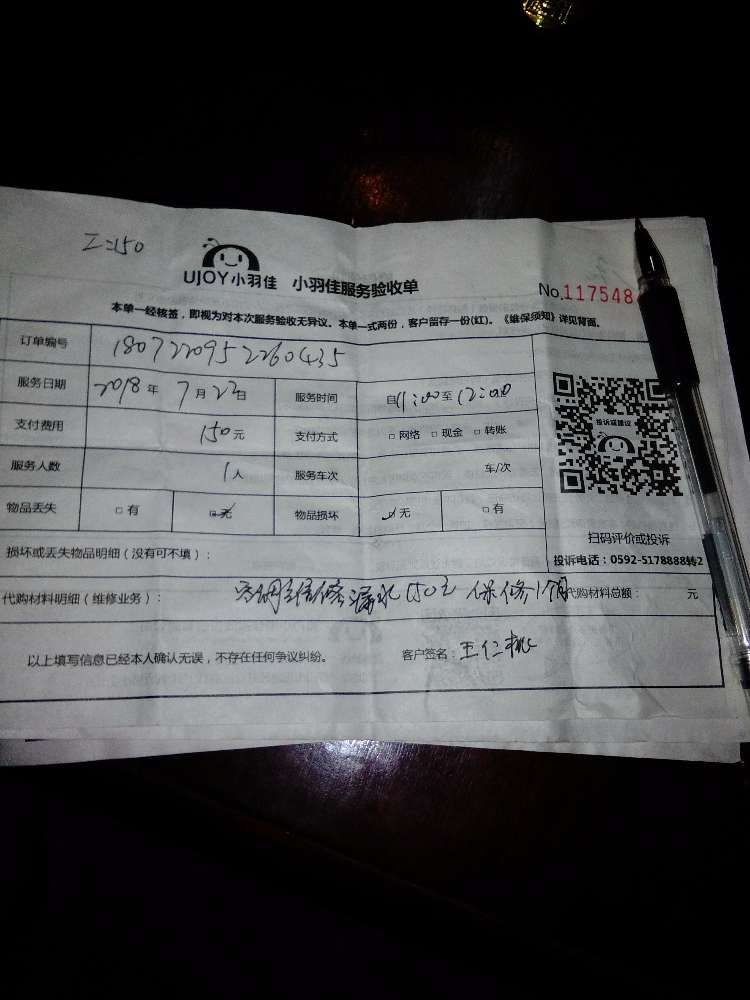 工=150
UJOY小羽佳 小羽佳服务验收单 No.117548
本单一经核签，即视为对本次服务验收无异议。本单一式两份，客户留存一份(红)。《维保须知》详见背面。
订单编号 1807220952260435
服务日期 2018年7月22日 服务时间 自11:00至12:00
支付费用 150元 支付方式 □网络 □现金 □转账
服务人数 1人 服务车次 车/次
物品丢失 □有 □无 物品损坏 □无 □有
投诉或建议
扫码评价或投诉
投诉电话：0592-5178888转2
损坏或丢失物品明细（没有可不填）：
代购材料明细（维修业务）： 空调维修漏水150元 保修1个月 代购材料总额： 元
以上填写信息已经本人确认无误，不存在任何争议纠纷。 客户签名：王仁